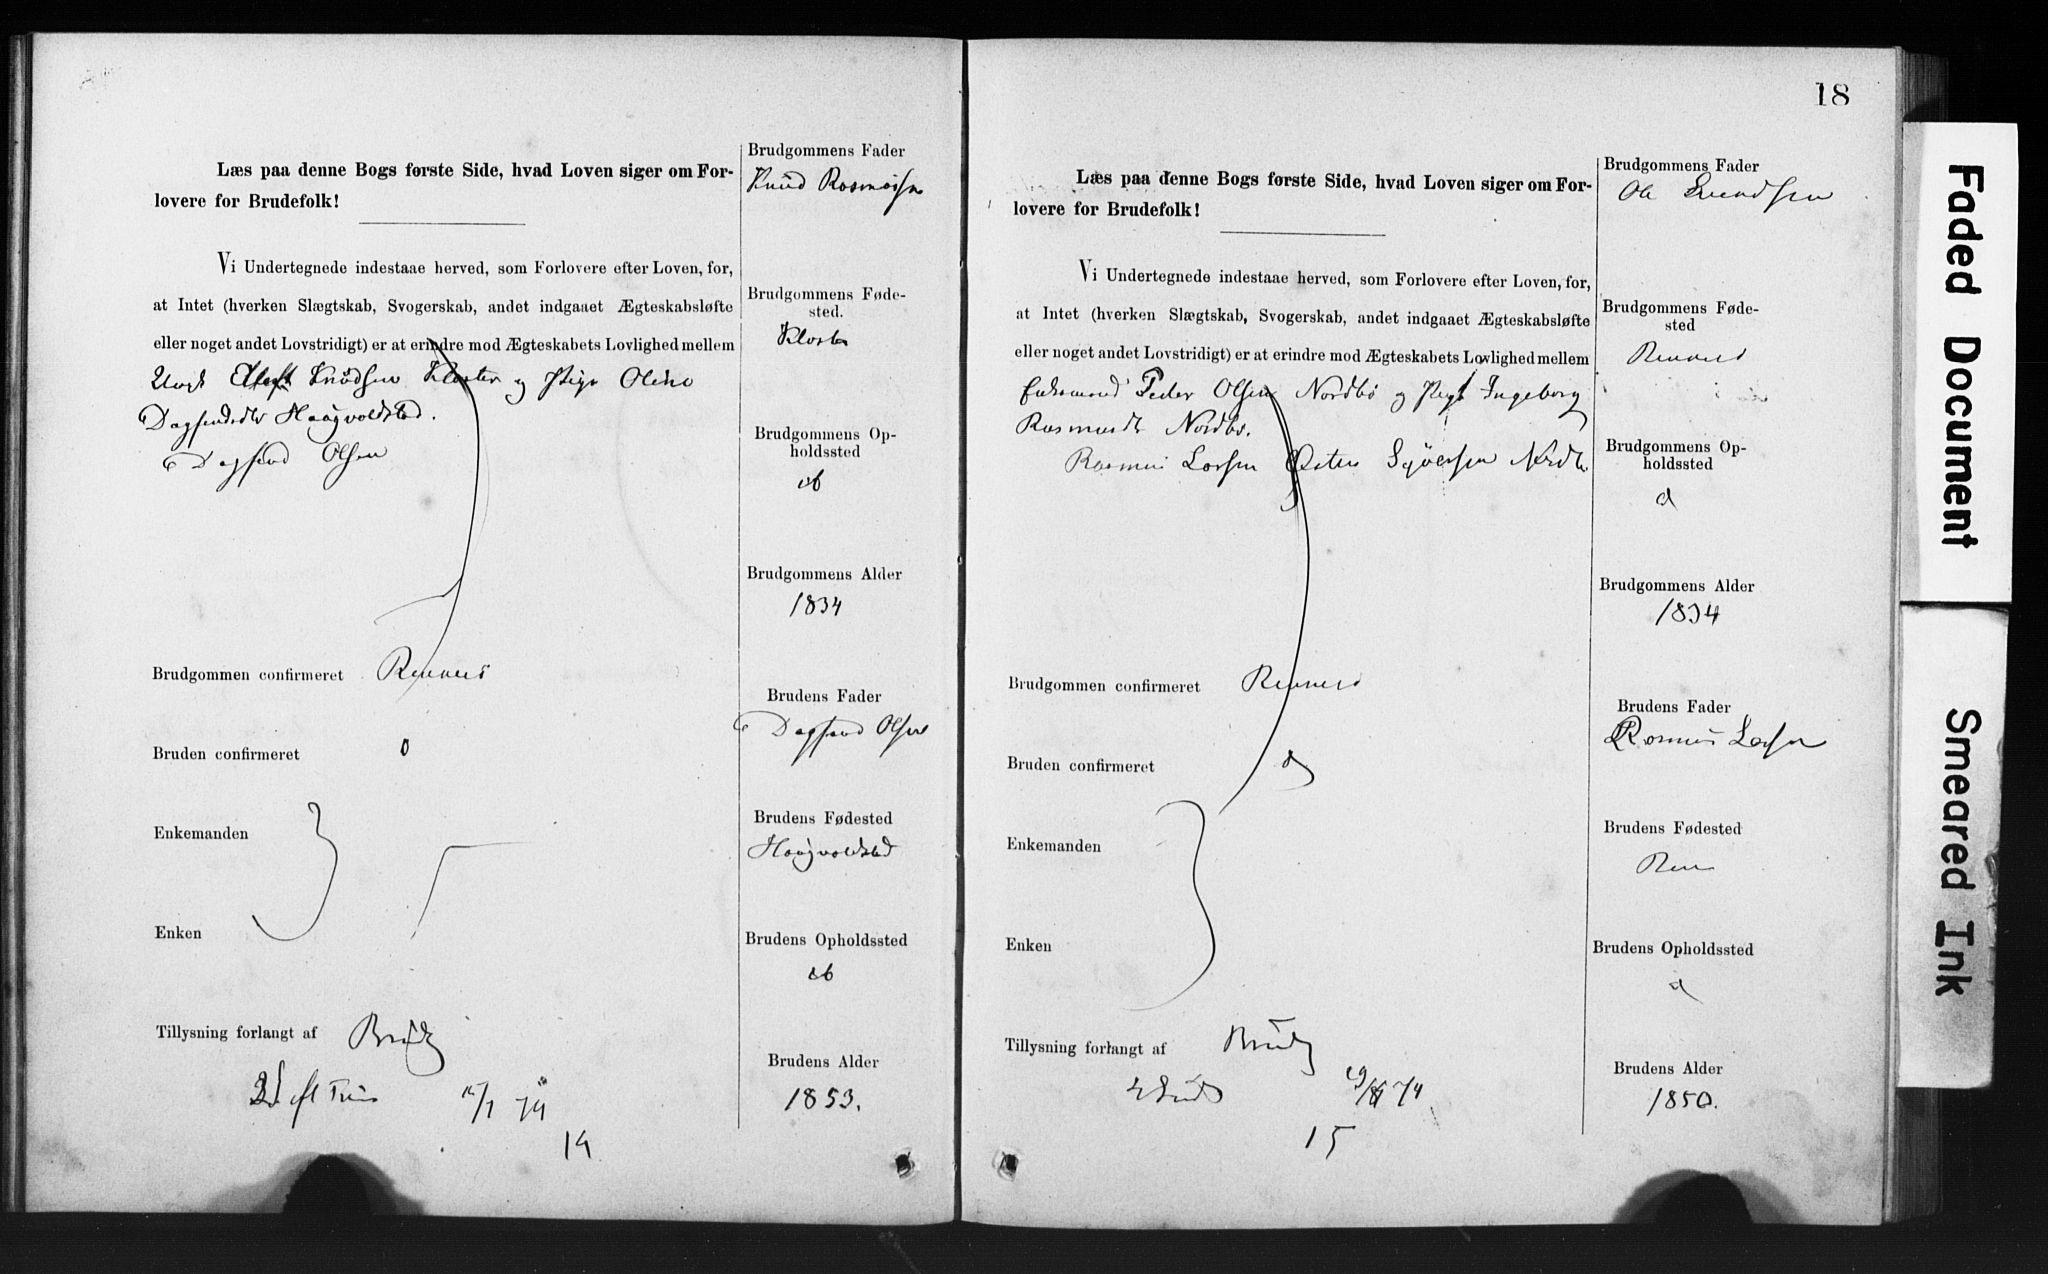 Læs paa denne Bogs første Side, hvad Loven siger om For-
lovere for Brudefolk!
Vi Undertegnede indestaae herved, som Forlovere efter Loven, for,
at Intet (hverken Slægtskab, Svogerskab, andet indgaaet Ægteskabsløfte
eller noget andet Lovstridigt) er at erindre mod Ægteskabets Lovlighed mellem
Knudsen Kloster og Pige Oline
Haagvoldstad.
Dagfind Olsen
Brudgommen confirmeret Rennesø
Bruden confirmeret
Enkemanden
Enken
Tillysning forlangt af Brudg
74
14
Brudgommens Fader
Knud Rasmusen
Brudgommens Føde-
sted.
Kloster
Brudgommens Op-
holdssted
Brudgommens Alder
1834
Brudens Fader
Dagfind Olsen
Brudens Fødested
Haagvoldstad
Brudens Opholdssted
Brudens Alder
1853.
18
Læs paa denne Bogs første Side, hvad Loven siger om For-
lovere for Brudefolk!
Vi Undertegnede indestaae herved, som Forlovere efter Loven, for,
at Intet (hverken Slægtskab, Svogerskab, andet indgaaet Ægteskabsløfte
eller noget andet Lovstridigt) er at erindre mod Ægteskabets Lovlighed mellem
Peder Olsen Nordbø og Pige Ingeborg
Rasmusdt Nordbø.
Rasmus Larsen Østen
Brudgommen confirmeret Rennesø
Bruden confirmeret d
Enkemanden
Enken
Tillysning forlangt af Brudg
74
15
Brudgommens Fader
Ole Svendsen
Brudgommens Føde-
sted
Rennesø
Brudgommens Op-
holdssted
d
Brudgommens Alder
1834
Brudens Fader
Rasmus Larsen
Brudens Fødested
Ren
Brudens Opholdssted
d
Brudens Alder
1850.
Faded Document
Smeared Ink